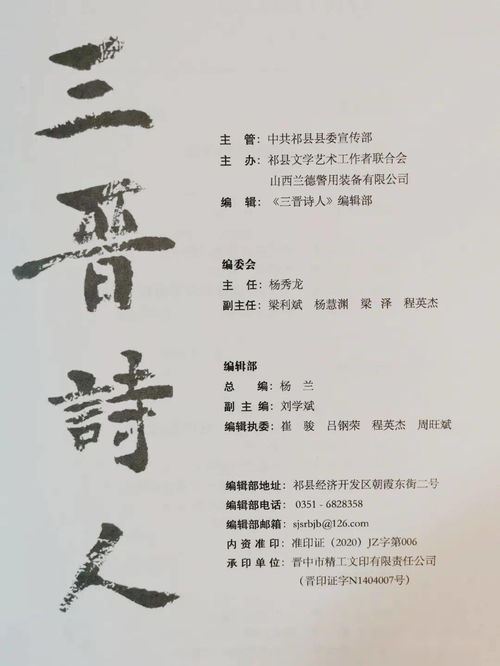 三晋詩人
主　管：中共祁县县委宣传部
主　办：祁县文学艺术工作者联合会
山西兰德警用装备有限公司
编　辑：《三晋诗人》编辑部
编委会
主　任：杨秀龙
副主任：梁利斌　杨慧渊　梁　泽　程英杰
编辑部
总　编：杨　兰
副 主 编：刘学斌
编辑执委：崔　骏　吕钢荣　程英杰　周旺斌
编辑部地址：祁县经济开发区朝霞东街二号
编辑部电话：0351 - 6828358
编辑部邮箱：sjsrbjb@126.com
内 资 准 印：准印证（2020）JZ字第006
承 印 单 位：晋中市精工文印有限责任公司
（晋印证字N1404007号）